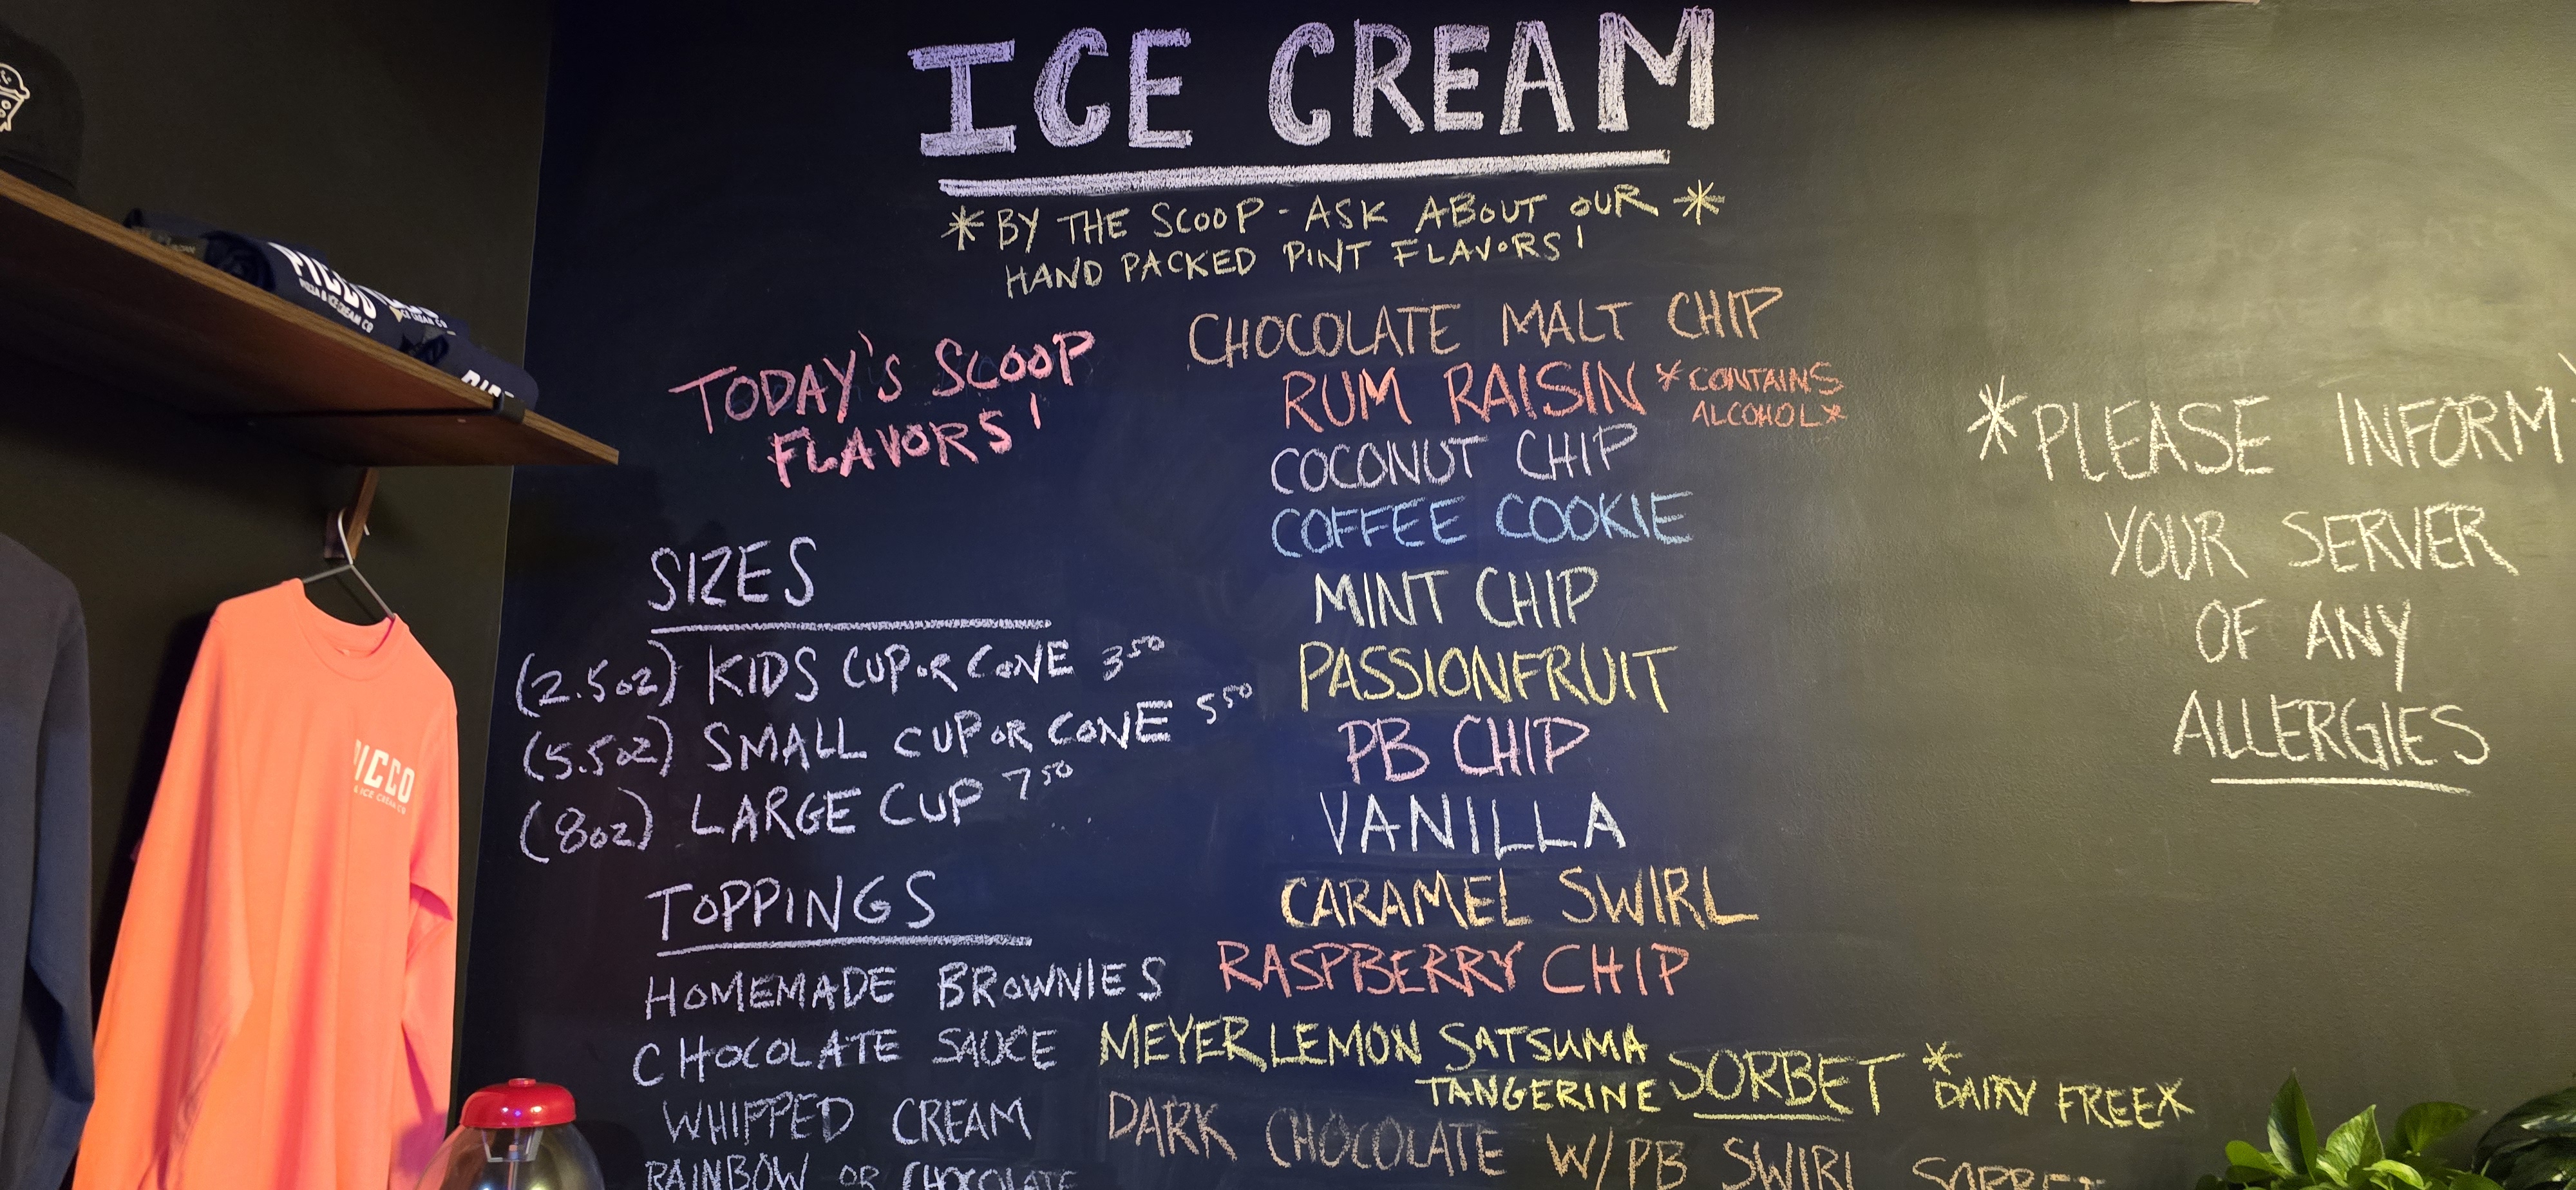 ICE CREAM
*BY THE SCOOP - ASK ABOUT OUR*
HAND PACKED PINT FLAVORS!
TODAY'S SCOOP
FLAVORS!
SIZES
(2.5oz) KIDS CUP OR CONE 3⁵⁰
(5.5oz) SMALL CUP OR CONE 5⁵⁰
(8oz) LARGE CUP 7⁵⁰
TOPPINGS
HOMEMADE BROWNIES
CHOCOLATE SAUCE
WHIPPED CREAM
RAINBOW OR CHOCOLATE
CHOCOLATE MALT CHIP
RUM RAISIN *CONTAINS
ALCOHOL*
COCONUT CHIP
COFFEE COOKIE
MINT CHIP
PASSIONFRUIT
PB CHIP
VANILLA
CARAMEL SWIRL
RASPBERRY CHIP
MEYER LEMON SATSUMA
TANGERINE SORBET *DAIRY FREE*
DARK CHOCOLATE W/PB SWIRL SORBET
*PLEASE INFORM
YOUR SERVER
OF ANY
ALLERGIES
PICCO
PIZZA & ICE CREAM CO
ICE CREAM CO
ICCO
& ICE CREAM CO